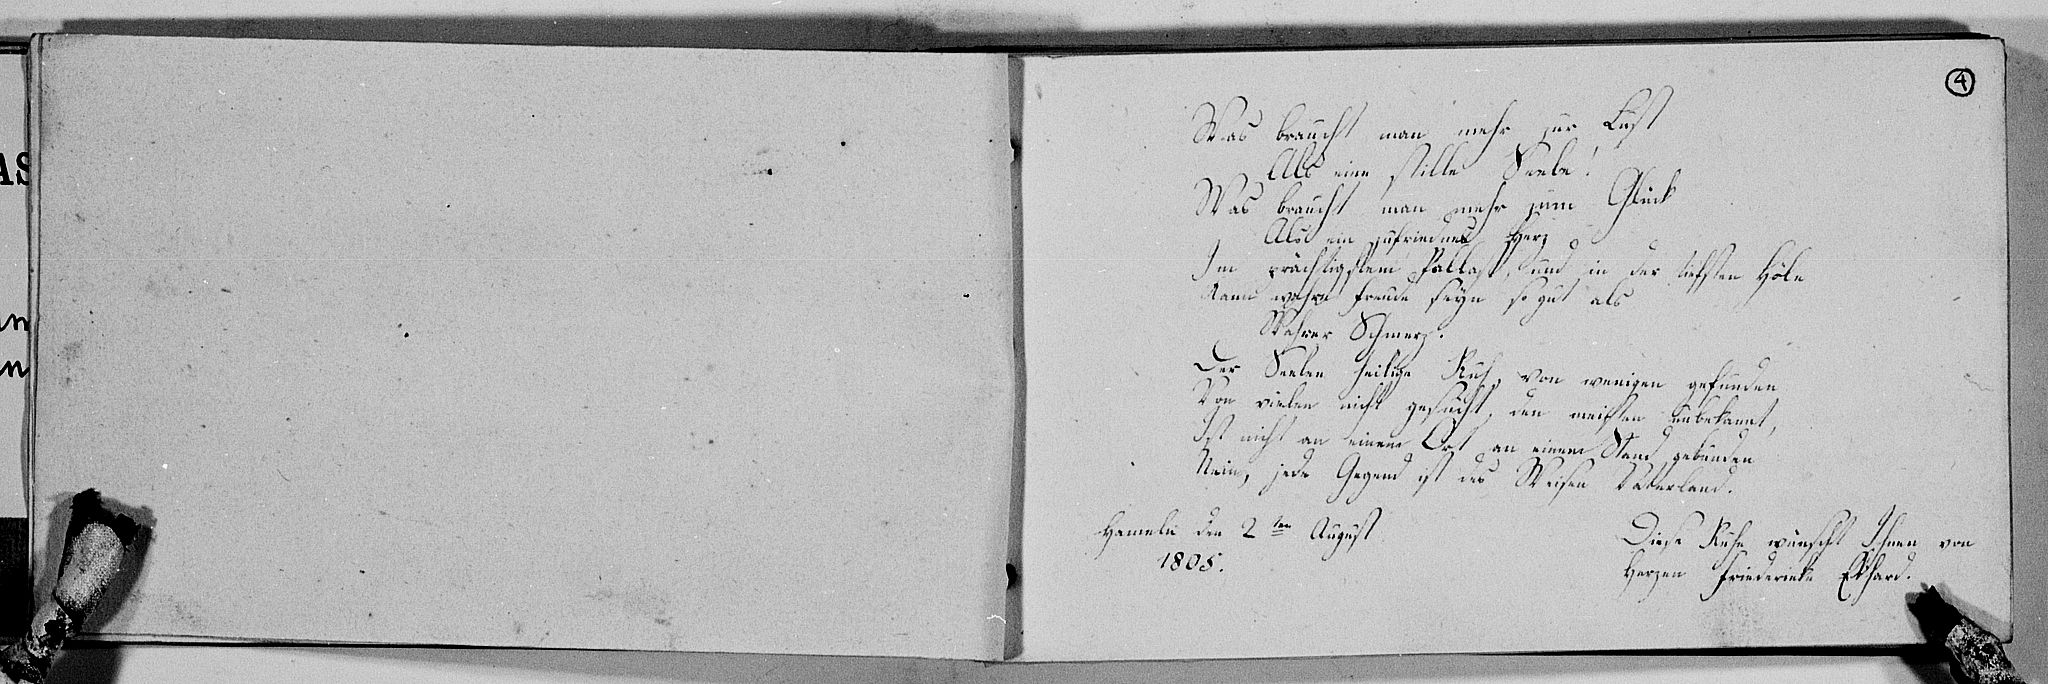 4
Was braucht man mehr zur Lust
Als eine stille Seele!
Was braucht man mehr zum Glück
Als ein zufriednes Herz
Im prächtigstem Pallast, und in der tiefsten Höle
Kann wahre freude seyn so gut als
Wahrer Schmerz.
Der Seelen heilige Ruh, von wenigen gefunden
Von vielen nicht gesucht, den meisten unbekannt,
Ist nicht an einem Ort an einem Stand gebunden
Nein, jede Gegend ist des Weisen Vaterland.
Hameln den 2ten August
1805.
Diese Ruhe wünscht Ihnen von
Herzen Friederieke